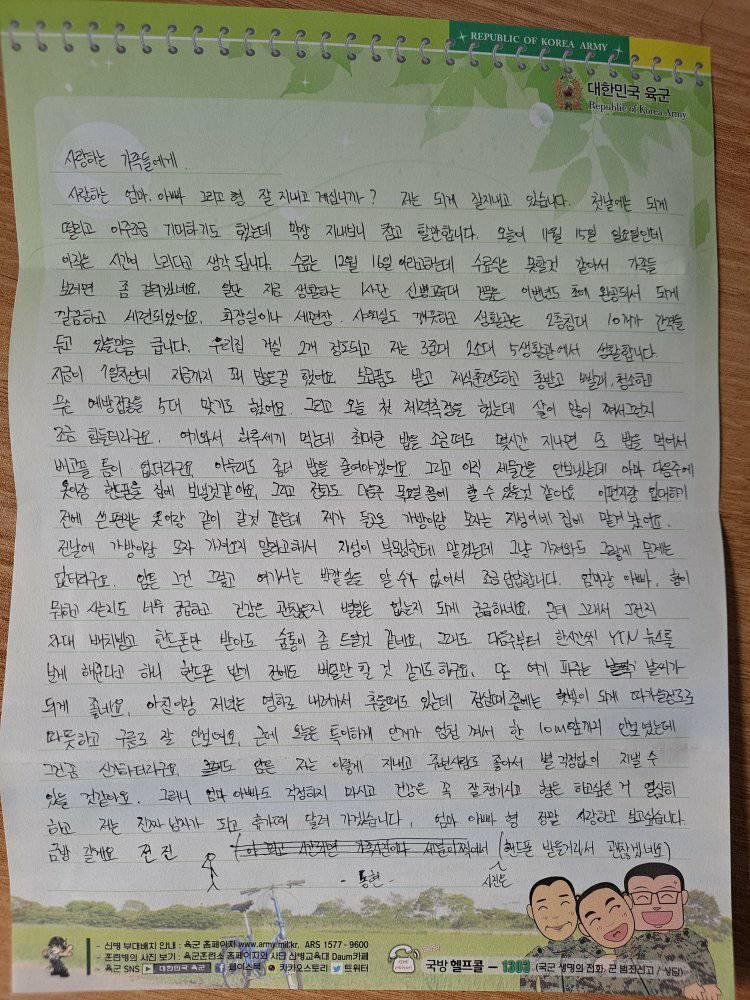 REPUBLIC OF KOREA ARMY
대한민국 육군
Republic of Korea Army
사랑하는 가족들에게.
사랑하는 엄마, 아빠 그리고 형 잘 지내고 계십니까? 저는 되게 잘지내고 있습니다. 첫날에는 되게
떨리고 아주조금 기대하기도 했는데 막상 지내보니 참고 할만합니다. 오늘이 11월 15일 일요일인데
아직은 시간이 느리다고 생각 됩니다. 수료는 12월 16일 이라고하는데 수료식은 못할것 같아서 가족들
보려면 좀 걸리겠네요. 일단 지금 생활하는 1사단 신병교육대 건물은 이번년도 초에 완공되서 되게
깔끔하고 세련되었어요. 화장실이나 세면장, 샤워실도 깨끗하고 생활관은 2층침대 10개가 간격을
두고 있을만큼 큽니다. 우리집 거실 2개 정도되고 저는 3중대 2소대 5생활관에서 생활합니다.
지금이 7일차인데 지금까지 꽤 많은걸 했어요. 보급품도 받고 제식훈련도하고 총받고 빨래, 청소하고
무슨 예방접종을 5대 맞기도 했어요. 그리고 오늘 첫 체력측정을 했는데 살이 많이 쪄서그런지
조금 힘들더라구요. 여기와서 하루세끼 먹는데 최대한 밥을 조금떠도 몇시간 지나면 또 밥을 먹어서
배고플 틈이 없더라구요. 아무래도 좀더 밥을 줄여야겠어요. 그리고 아직 세물건을 안보냈는데 아마 다음주에
옷이랑 한번을 집에 보낼것같아요. 그리고 전화도 다음주 목요일 쯤에 할 수 있을것 같아요. 이편지랑 입대하기
전에 쓴 편지는 옷이랑 같이 갈것 같은데 제가 들고온 가방이랑 모자는 지성이네 집에 맡겨 놨어요.
전날에 가방이랑 모자 가져오지 말라고해서 지성이 부모님한테 맡겼는데 그냥 가져와도 그렇게 문제는
없더라구요. 암튼 그건 그렇고 여기서는 바깥 소식을 알 수가 없어서 조금 답답합니다. 엄마랑 아빠, 형이
뭐하고 사는지도 너무 궁금하고 건강은 괜찮은지 별일은 없는지 되게 궁금하네요. 근데 그래서 그런지
자대 배치받고 핸드폰만 받아도 숨통이 좀 트일것 같네요. 그래도 다음주부터 한시간씩 YTN 뉴스를
보게 해준다고 하니 핸드폰 받기 전에도 버틸만 할 것 같기도 하구요. 또 여기 파주는 날씨가
되게 좋네요. 아침이랑 저녁은 영하로 내려가서 추울때도 있는데 점심때 쯤에는 햇빛이 되게 따가울정도로
따뜻하고 구름도 잘 안보여요. 근데 오늘은 특이하게 안개가 엄청 껴서 한 10m앞까지 안보였는데
그건좀 신기하더라구요. 암튼 저는 이렇게 지내고 주변사람도 좋아서 별 걱정없이 지낼 수
있을 것같아요. 그러니 엄마 아빠도 걱정하지 마시고 건강은 꼭 잘챙기시고 형은 하고싶은 거 열심히
하고 저는 진짜 남자가 되고 휴가때 달려 가겠습니다. 엄마 아빠 형 정말 사랑하고 보고싶습니다.
금방 갈게요 전진 (핸드폰 받을거라서 괜찮겠네요)
사진은
- 동현 -
- 신병 부대배치 안내 : 육군 홈페이지 www.army.mil.kr, ARS 1577-9600
- 훈련병의 사진 보기 : 육군훈련소 홈페이지와 사단 신병교육대 Daum카페
- 육군 SNS 대한민국 육군 페이스북 카카오스토리 트위터
국방 헬프콜 - 1303 (국군 생명의 전화, 군 범죄신고 / 상담)